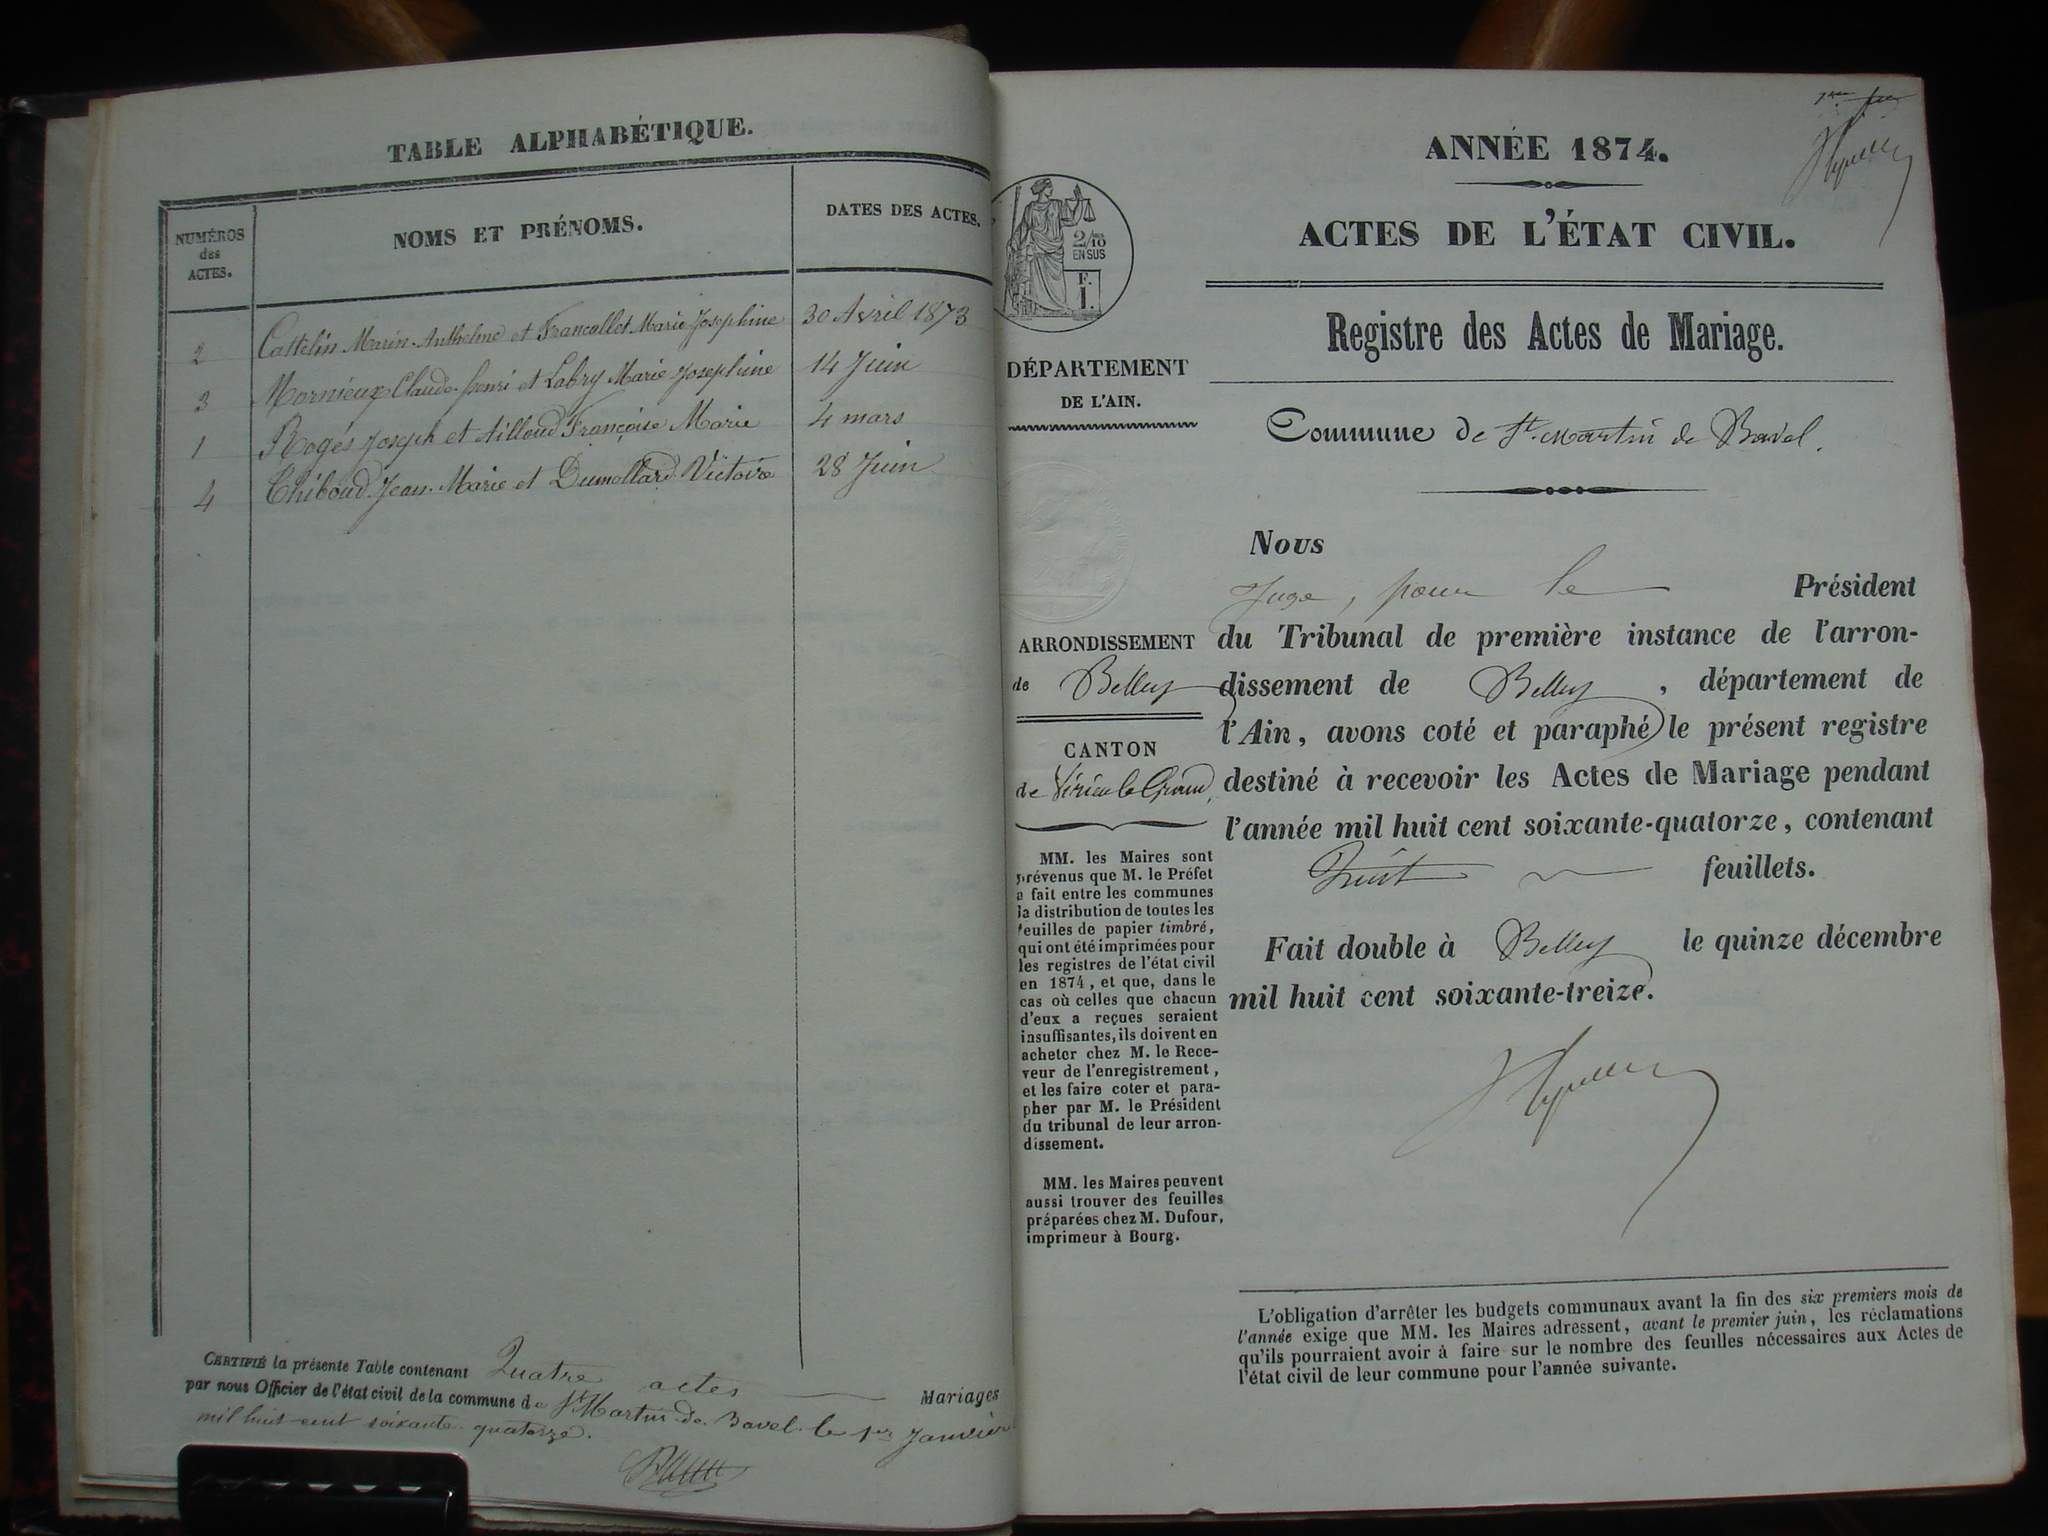 TABLE ALPHABÉTIQUE.
NUMÉROS
des
ACTES.
NOMS ET PRÉNOMS.
DATES DES ACTES.
2 Castelin Marin-Anthelme et Francallet Marie Josephine 30 Avril 1873
3 Mornieux Claude-henri et Labry Marie Josephine 14 Juin
1 Rogès Joseph et Ailloud Françoise Marie 4 mars
4 Thiboud Jean-Marie et Dumollard Victoire 28 Juin
CERTIFIÉ la présente Table contenant Quatre actes Mariages
par nous Officier de l'état civil de la commune de St Martin de Bavel le 1er Janvier
mil huit cent soixante-quatorze.
ANNÉE 1874.
ACTES DE L'ÉTAT CIVIL.
2/10
EN SUS
F.
1.
Registre des Actes de Mariage.
DÉPARTEMENT
DE L'AIN.
Commune de St. Martin de Bavel.
ARRONDISSEMENT
de Belley
CANTON
de Virieu le Grand,
MM. les Maires sont
prévenus que M. le Préfet
a fait entre les communes
la distribution de toutes les
feuilles de papier timbré,
qui ont été imprimées pour
les registres de l'état civil
en 1874, et que, dans le
cas où celles que chacun
d'eux a reçues seraient
insuffisantes, ils doivent en
acheter chez M. le Rece-
veur de l'enregistrement,
et les faire coter et para-
pher par M. le Président
du tribunal de leur arron-
dissement.
MM. les Maires peuvent
aussi trouver des feuilles
préparées chez M. Dufour,
imprimeur à Bourg.
Nous
Juge, pour le Président
du Tribunal de première instance de l'arron-
dissement de Belley, département de
l'Ain, avons coté et paraphé le présent registre
destiné à recevoir les Actes de Mariage pendant
l'année mil huit cent soixante-quatorze, contenant
huit feuillets.
Fait double à Belley le quinze décembre
mil huit cent soixante-treize.
L'obligation d'arrêter les budgets communaux avant la fin des six premiers mois de
l'année exige que MM. les Maires adressent, avant le premier juin, les réclamations
qu'ils pourraient avoir à faire sur le nombre des feuilles nécessaires aux Actes de
l'état civil de leur commune pour l'année suivante.